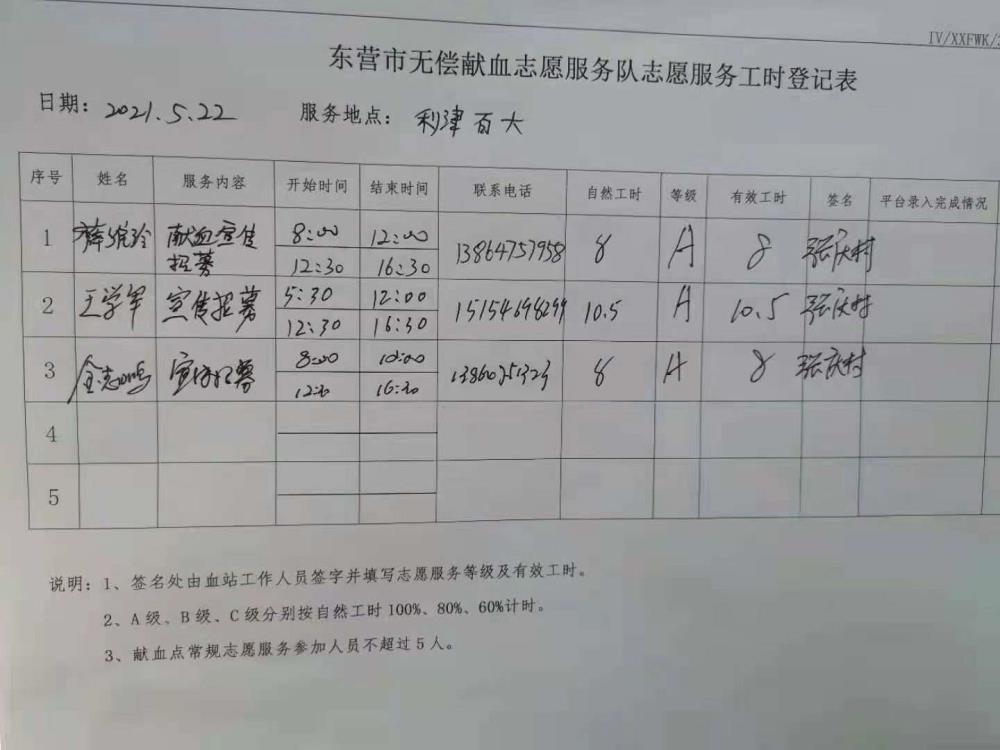 IV/XXFWK/
东营市无偿献血志愿服务队志愿服务工时登记表
日期：2021.5.22 服务地点：利津百大
序号 姓名 服务内容 开始时间 结束时间 联系电话 自然工时 等级 有效工时 签名 平台录入完成情况
1 献血宣传招募 8:00 12:00 13864757958 8 A 8 张庆村
12:30 16:30
2 王学军 宣传招募 5:30 12:00 10.5 A 10.5 张庆村
12:30 16:30
3 金志鸣 宣传招募 8:00 10:00 8 A 8 张庆村
12:30 16:30
4
5
说明：1、签名处由血站工作人员签字并填写志愿服务等级及有效工时。
2、A级、B级、C级分别按自然工时100%、80%、60%计时。
3、献血点常规志愿服务参加人员不超过5人。